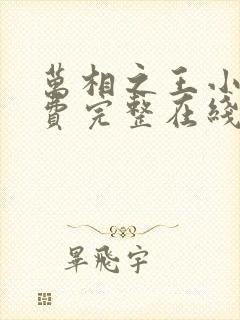 萬相之王小
費完整在綫
畢飛宇